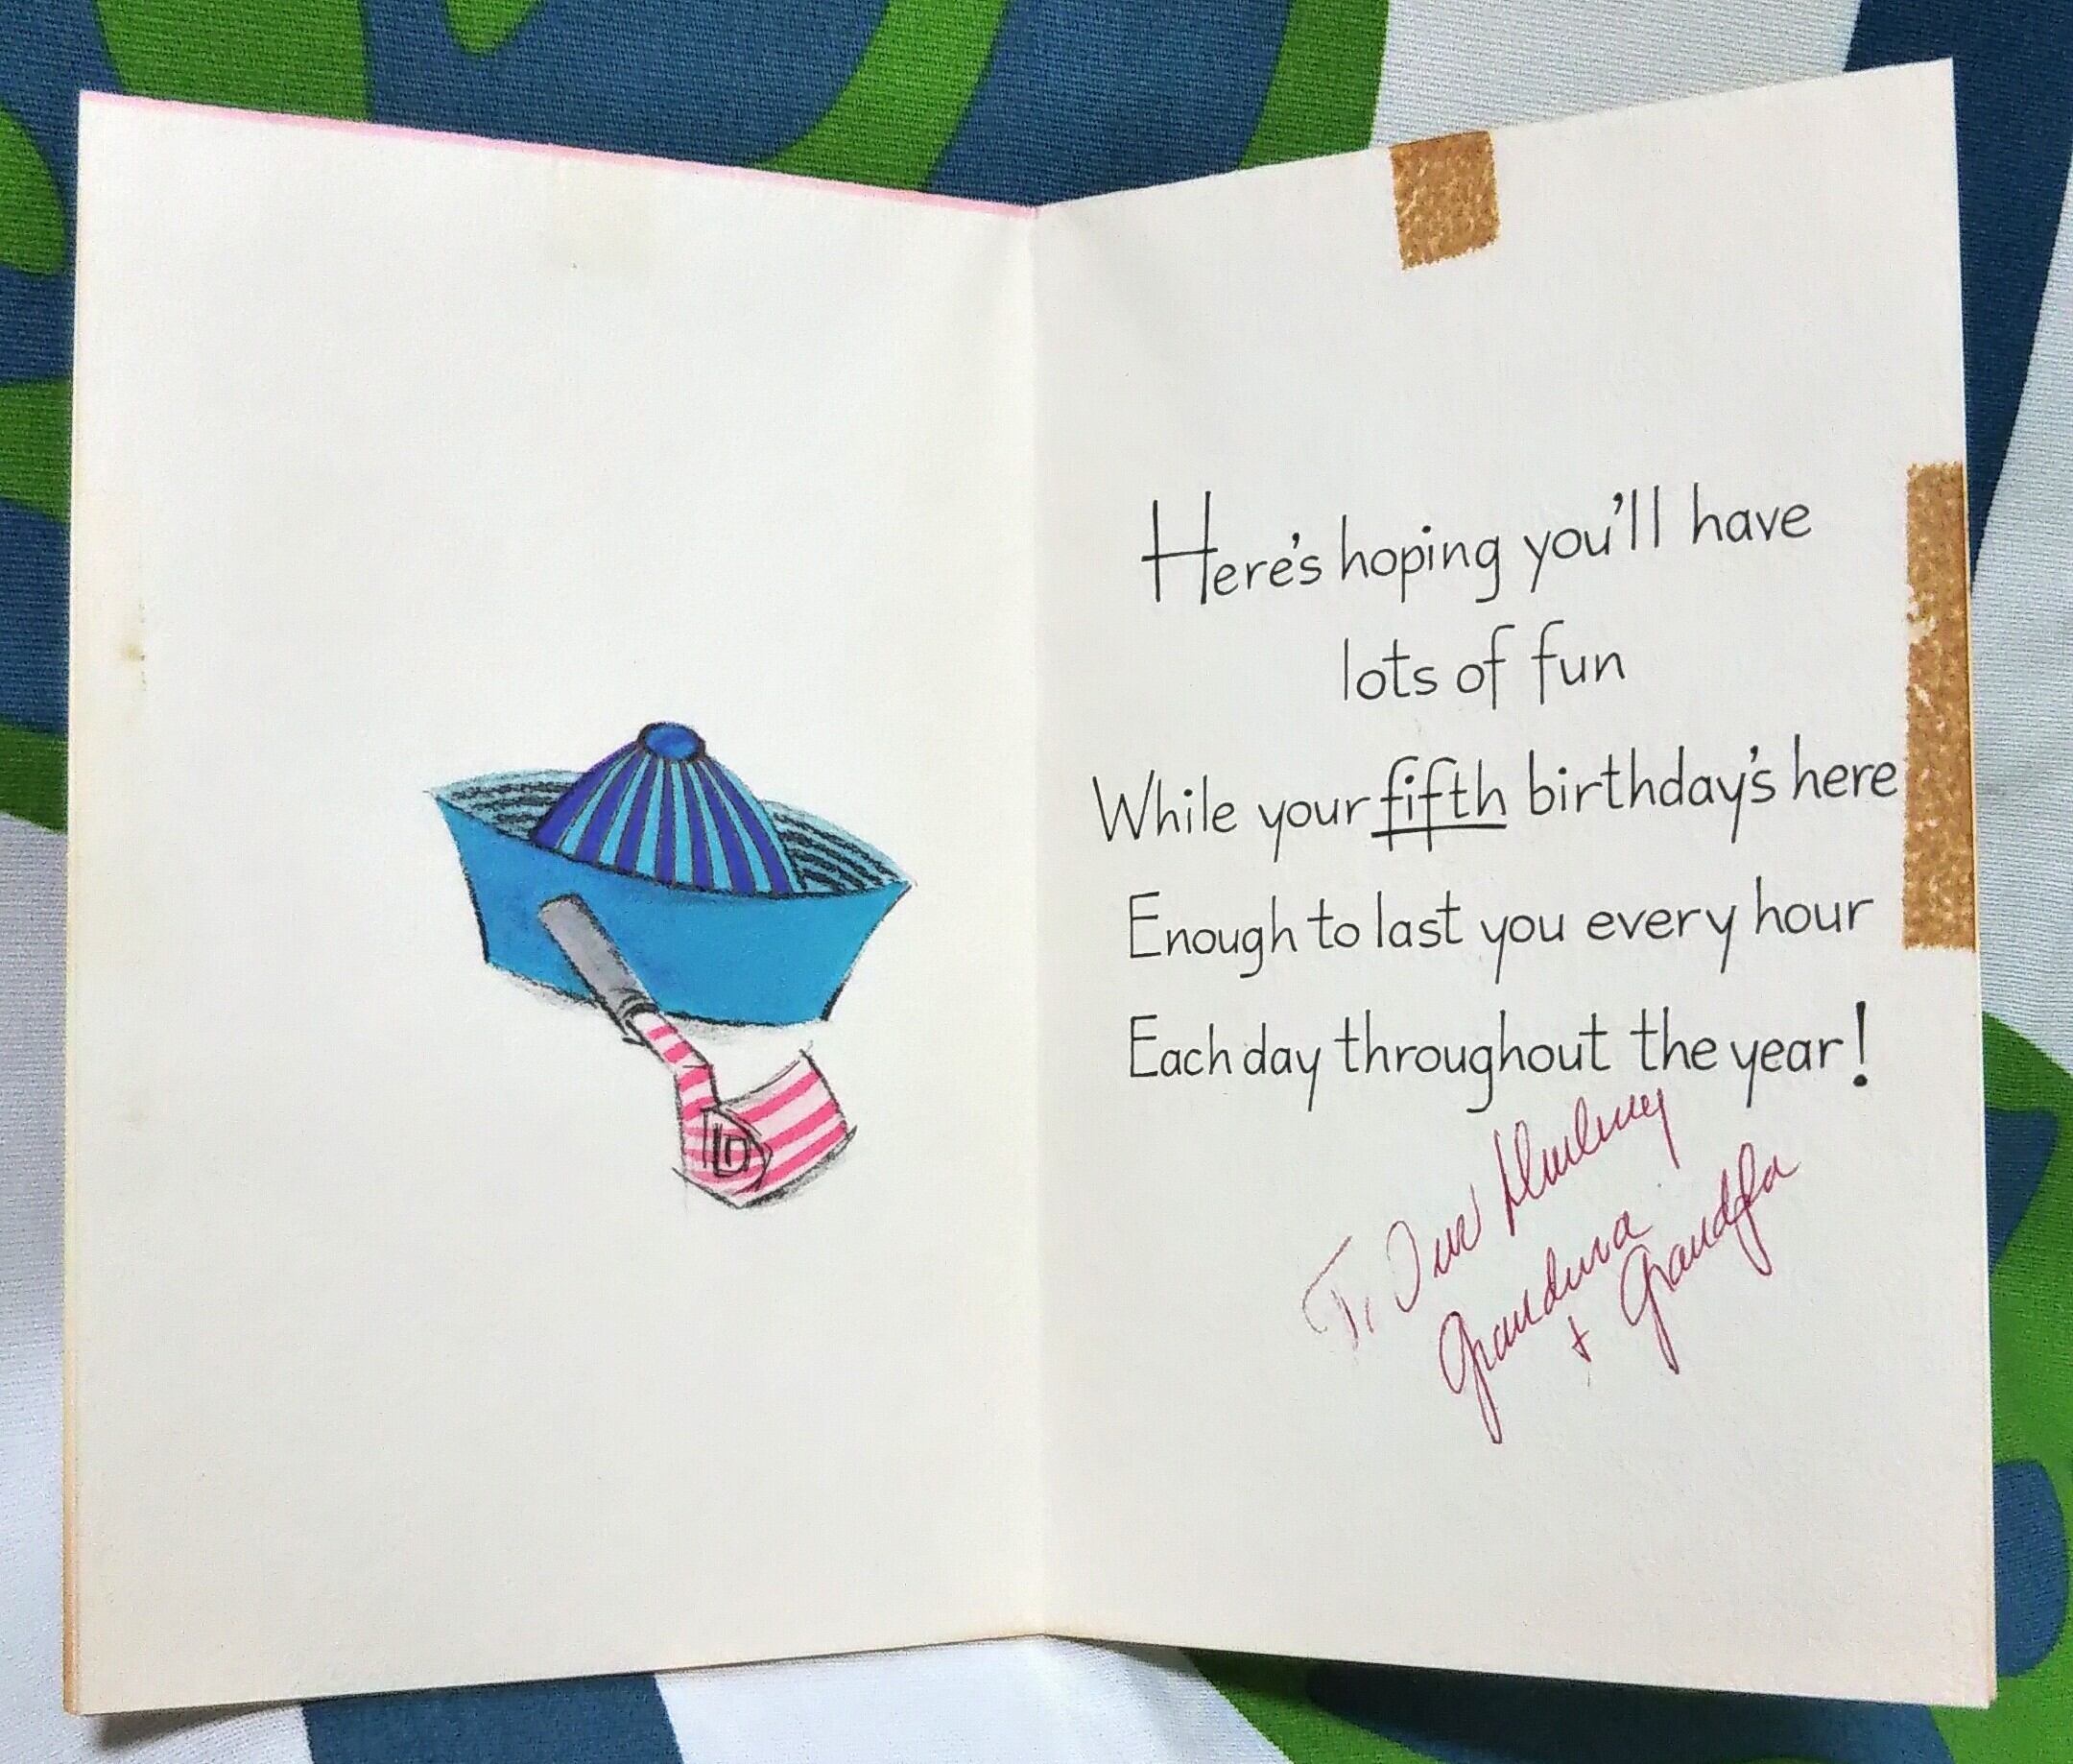 Here's hoping you'll have
lots of fun
While your fifth birthday's here
Enough to last you every hour
Each day throughout the year!
To Our
Grandma
+ Grandpa